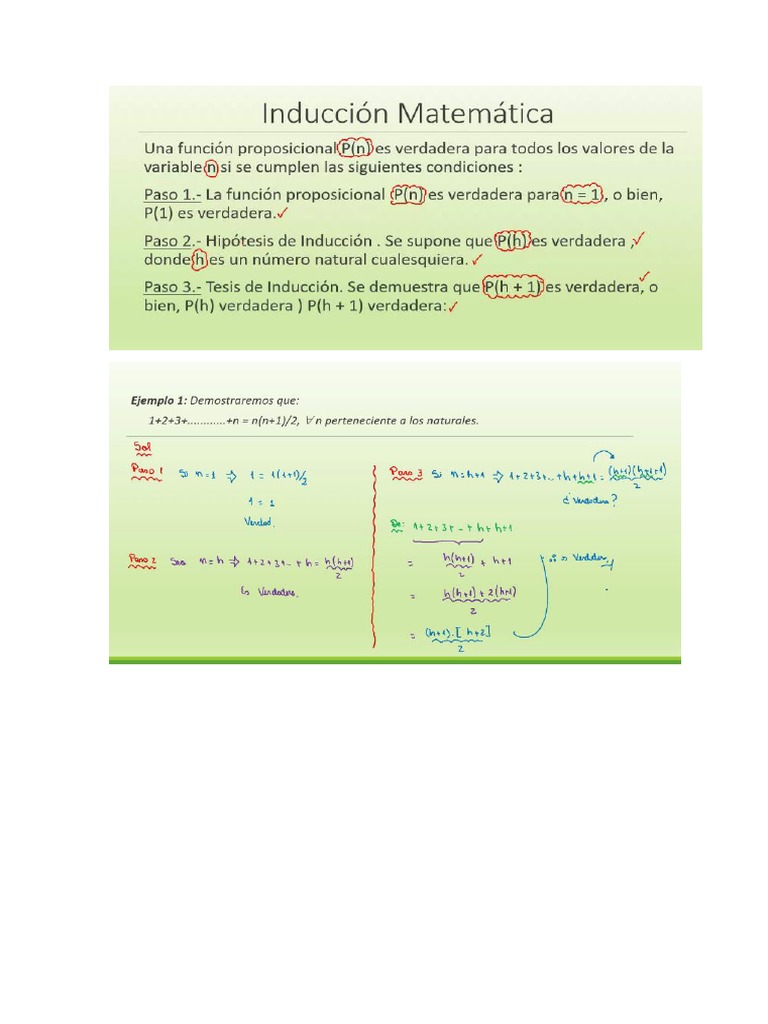 Inducción Matemática
Una función proposicional P(n) es verdadera para todos los valores de la
variable n si se cumplen las siguientes condiciones :
Paso 1.- La función proposicional P(n) es verdadera para n = 1 , o bien,
P(1) es verdadera.✓
Paso 2.- Hipótesis de Inducción . Se supone que P(h) es verdadera ,✓
donde h es un número natural cualesquiera. ✓
Paso 3.- Tesis de Inducción. Se demuestra que P(h + 1) es verdadera, o ✓
bien, P(h) verdadera ) P(h + 1) verdadera:✓
Ejemplo 1: Demostraremos que:
1+2+3+............+n = n(n+1)/2, ∀ n perteneciente a los naturales.
Sol
Paso 1 Si n=1 ⇒ 1 = 1(1+1)/2
1 = 1
Verdad.
Paso 2 Sea n=h ⇒ 1+2+3+..+h = h(h+1)/2
Es Verdadera.
Paso 3 Si n=h+1 ⇒ 1+2+3+..+h+h+1 = (h+1)(h+1+1)/2
¿Verdadera?
De: 1+2+3+..+h+h+1
= h(h+1)/2 + h+1
= h(h+1)+2(h+1)/2
= (h+1).[h+2]/2
∴ es Verdadera